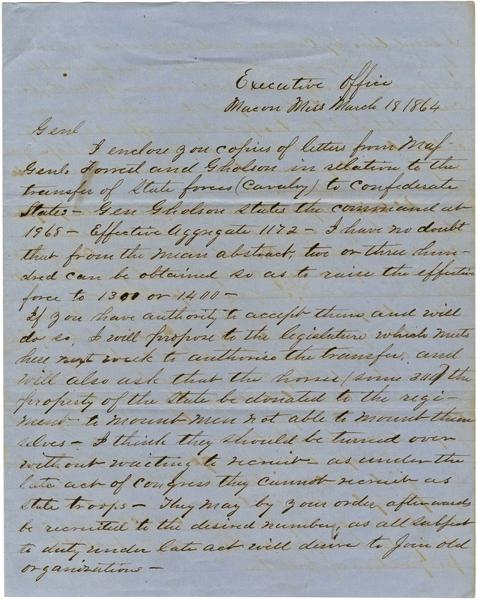 Executive Office
Macon Miss March 18, 1864
Genl
I enclose you copies of letters from Maj-
Genls Forrest and Gholson in relation to the
transfer of State forces (cavalry) to Confederate
States - Gen Gholson states the command at
1968 - Effective Aggregate 1172 - I have no doubt
that from the mean abstract, two or three hun-
dred can be obtained so as to raise the effective
force to 1300 or 1400 -
If you have authority to accept them and will
do so, I will propose to the legislature which meets
here next week to authorise the transfer, and
will also ask that the horses (some 200) the
property of the State be donated to the regi-
ment to mount men not able to mount them
selves - I think they should be turned over
without waiting to recruit as under the
late act of Congress they cannot recruit as
State troops - They may by your order afterwards
be recruited to the desired number, as all subject
to duty under late act will desire to join old
organizations -